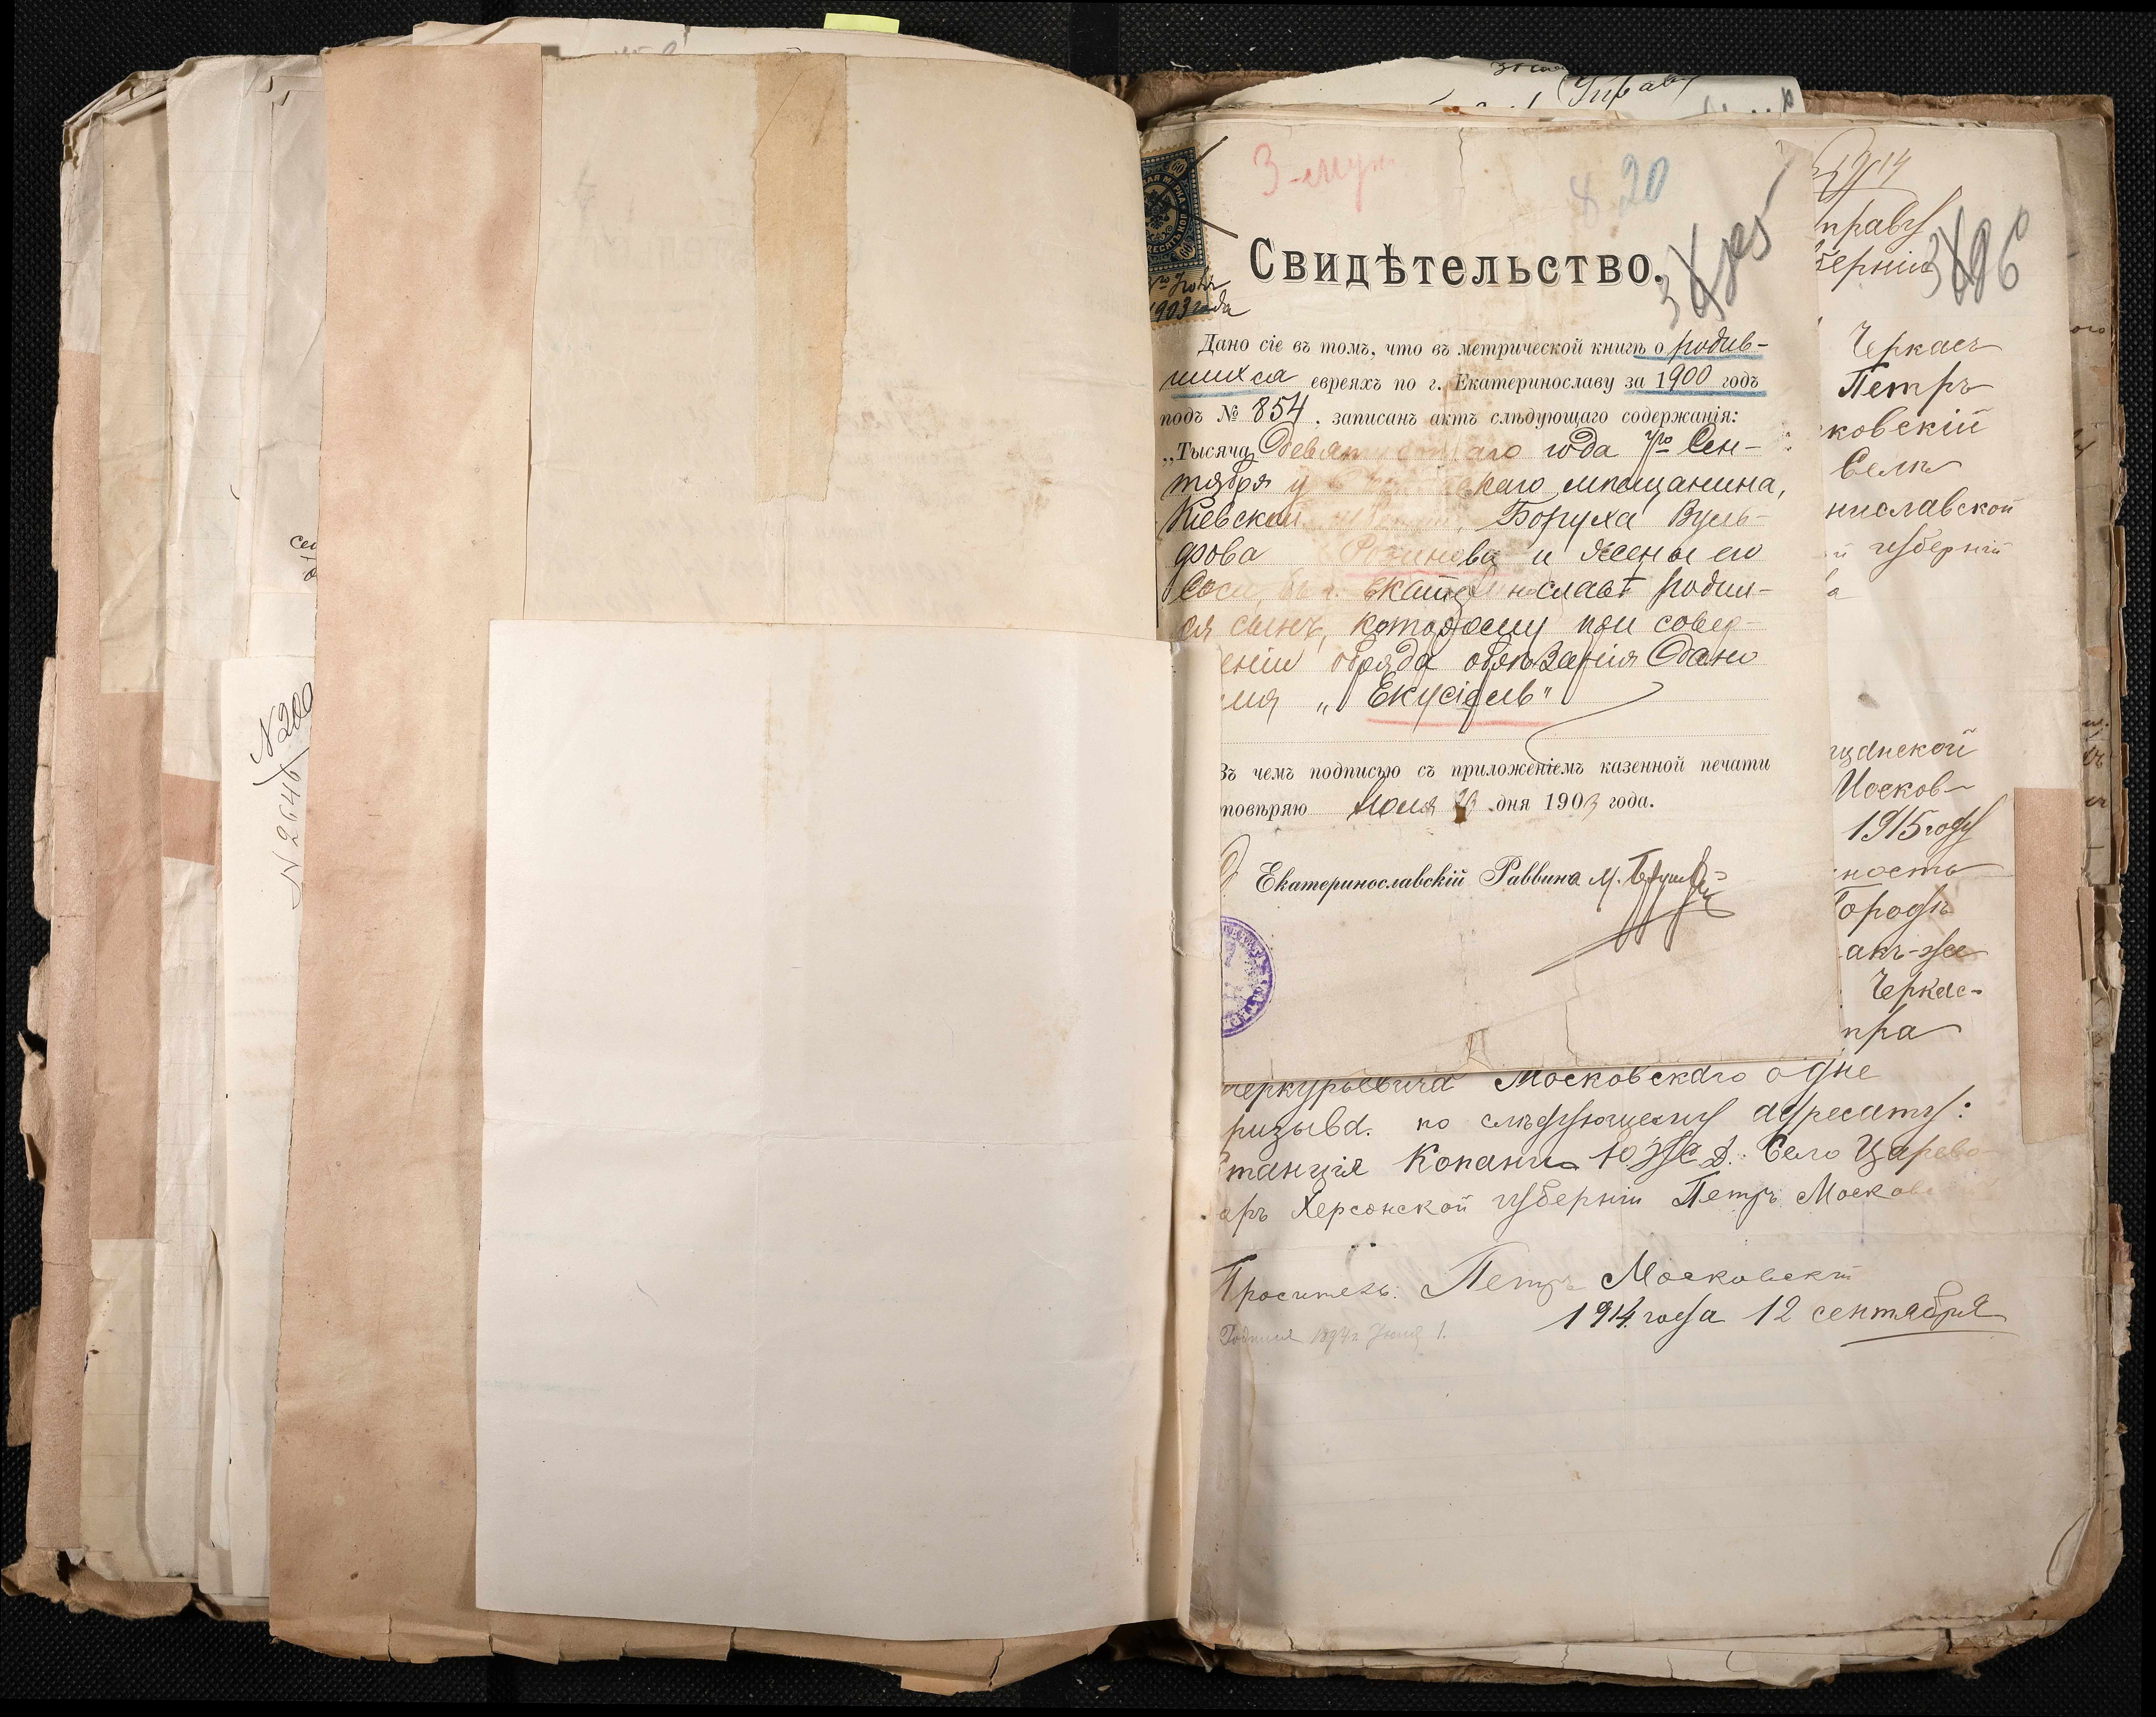 N 200
N 2646
3-мун
20
Свидѣтельство.
1903 года
Дано сіе въ томъ, что въ метрической книгѣ о родив-
шихся евреяхъ по г. Екатеринославу за 1900 годъ
подъ № 854, записанъ актъ слѣдующаго содержанія:
„Тысяча девять аго года 7го Сен-
тября у скаго мѣщанина,
Кіевской Боруха Вуль-
фова и жены его
Соси, въ г. Екатеринославѣ родил-
ся сынъ, которому при совер-
еніи обряда обрѣзанія дано
имя „Екусіель"
Въ чемъ подписью съ приложеніемъ казенной печати
товѣряю Іюля дня 1903 года.
Екатеринославскій Раввинъ М.
1914
праву
берніи
Черкас
Петръ
ковскій
Села
нославской
губерніи
а
щанской
Москов-
1915 году
ность
Городъ
акъ-же
Черкас-
тра
меркурьевича Московскаго о дне
ризыва. по слѣдующему адресату:
станція Копани Ю Ж Д. Село Царево-
аръ Херсонской губерніи Петръ Москов
Проситель: Петръ Московскій
1914 года 12 сентября